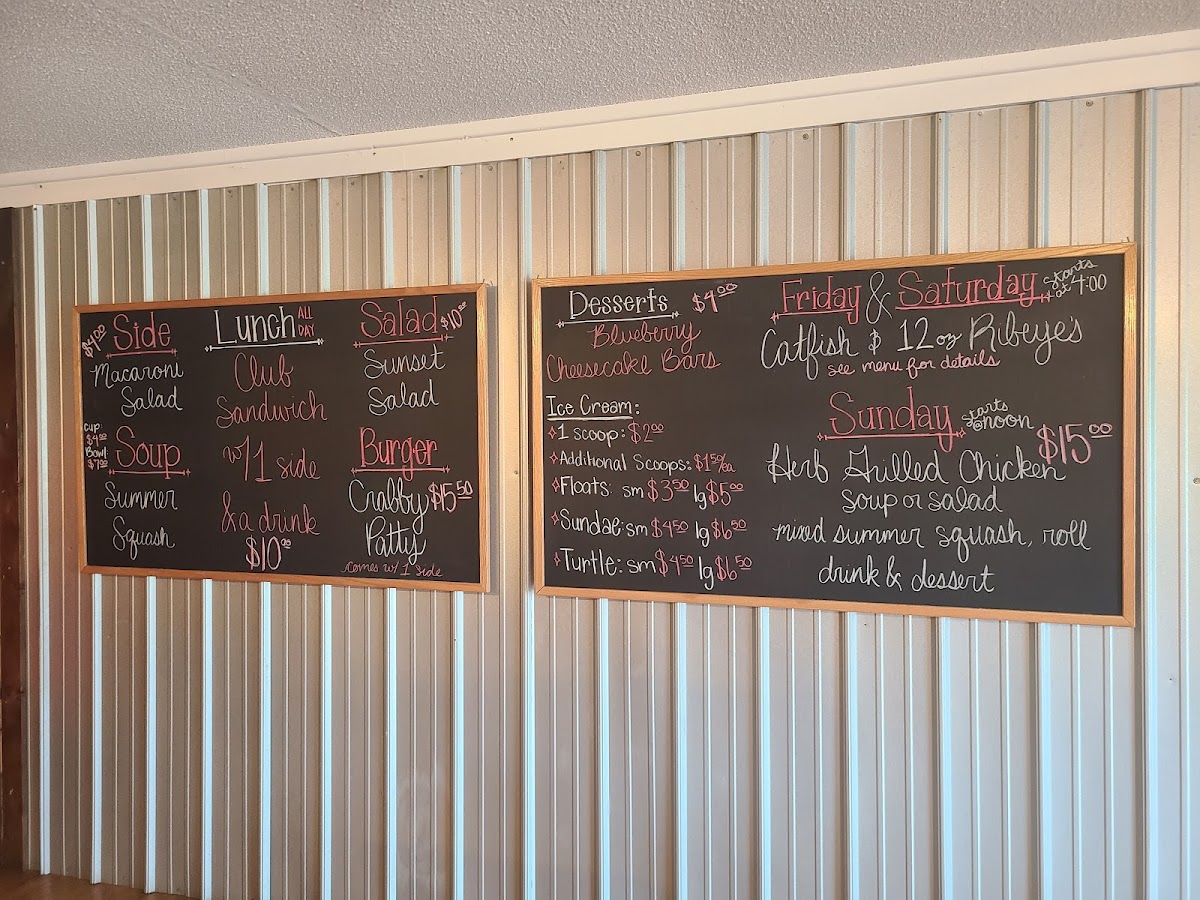 $4.00 Side
Macaroni
Salad
Cup:
$4.00
Bowl:
$7.00
Soup
Summer
Squash
Lunch ALL DAY
Club
Sandwich
w/1 side
& a drink
$10.00
Salad $10.00
Sunset
Salad
Burger
Crabby $15.50
Patty
comes w/ 1 side
Desserts $4.00
Blueberry
Cheesecake Bars
Ice Cream:
1 scoop: $2.00
Additional Scoops: $1.50/ea
Floats: sm $3.50 lg $5.00
Sundae: sm $4.50 lg $6.50
Turtle: sm $4.50 lg $6.50
Friday & Saturday starts at 4:00
Catfish & 12oz Ribeye's
see menu for details
Sunday starts @noon
$15.00
Herb Grilled Chicken
soup or salad
mixed summer squash, roll
drink & dessert